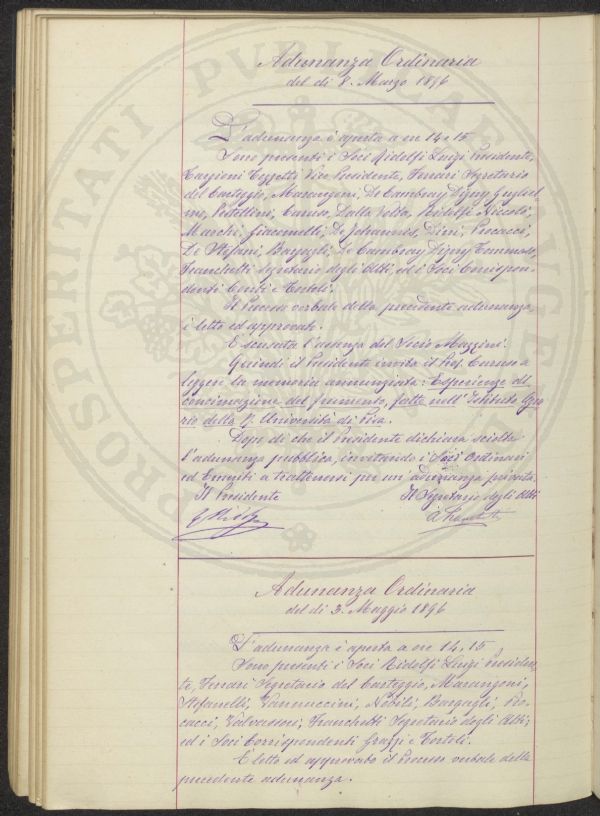 Adunanza Ordinaria
del dì 8. Marzo 1896
L'adunanza è aperta a ore 14 e 15
Sono presenti i Soci Ridolfi Luigi Presidente,
Targioni Tozzetti Vice Presidente, Ferrari Segretario
del Carteggio, Marangoni, De Cambray Digny Gugliel-
mo, Pestellini, Caruso, Dalla Volta, Ridolfi Niccolò,
Marchi, Giacomelli, De Johannis, Dini, Procacci,
De Stefani, Bargagli, De Cambray Digny Tommaso,
Franchetti Segretario degli Atti, ed i Soci Corrispon-
denti Conti e Tortoli.
Il Processo verbale della precedente adunanza,
è letto ed approvato.
È scusata l'assenza del Socio Mazzini.
Quindi il Presidente invita il Prof. Caruso a
leggere la memoria annunziata: Esperienze di
concimazione del frumento, fatte nell'Istituto Agra-
rio della R. Università di Pisa.
Dopo di che il Presidente dichiara sciolta
l'adunanza pubblica, invitando i Soci Ordinari
ed Emeriti a trattenersi per un'adunanza privata.
Il Presidente Il Segretario degli Atti
L. Ridolfi A. Franchetti
Adunanza Ordinaria
del dì 3. Maggio 1896
L'adunanza è aperta a ore 14, 15
Sono presenti i Soci Ridolfi Luigi Presiden-
te, Ferrari Segretario del Carteggio, Marangoni,
Stefanelli, Vannuccini, Nobili, Bargagli, Pro-
cacci, Valvassori, Franchetti Segretario degli Atti;
ed i Soci Corrispondenti Grazzi e Tortoli.
È letto ed approvato il Processo verbale della
precedente adunanza.
PROSPERITATI PUBLICAE AUGENDAE